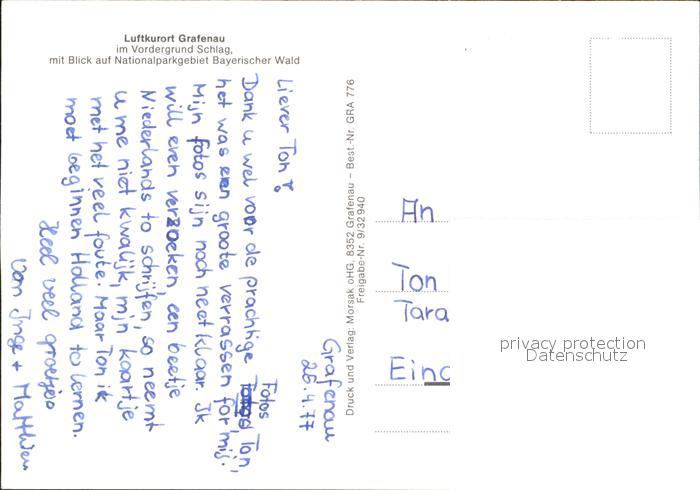 Luftkurort Grafenau
im Vordergrund Schlag,
mit Blick auf Nationalparkgebiet Bayerischer Wald
Grafenau
26.4.77
Liever Ton!
Dank u wel voor de prachtige Fotos Ton,
het was een groote verrassen for mij.
Mijn fotos sijn noch neet klaar. Ik
will even verzoeken, een beetje
Niederlands to schrijfen, so neemt
u me niet kwalijk, mijn kaartje
met het veel foute. Maar Ton ik
moet beginnen Holland to lernen.
Heel veel groetjes
Vom Inge + Matthias
Druck und Verlag: Morsak oHG, 8352 Grafenau – Best.-Nr. GRA 776
Freigabe-Nr. 9/32940
An
Ton
Tara
Eind
privacy protection
Datenschutz